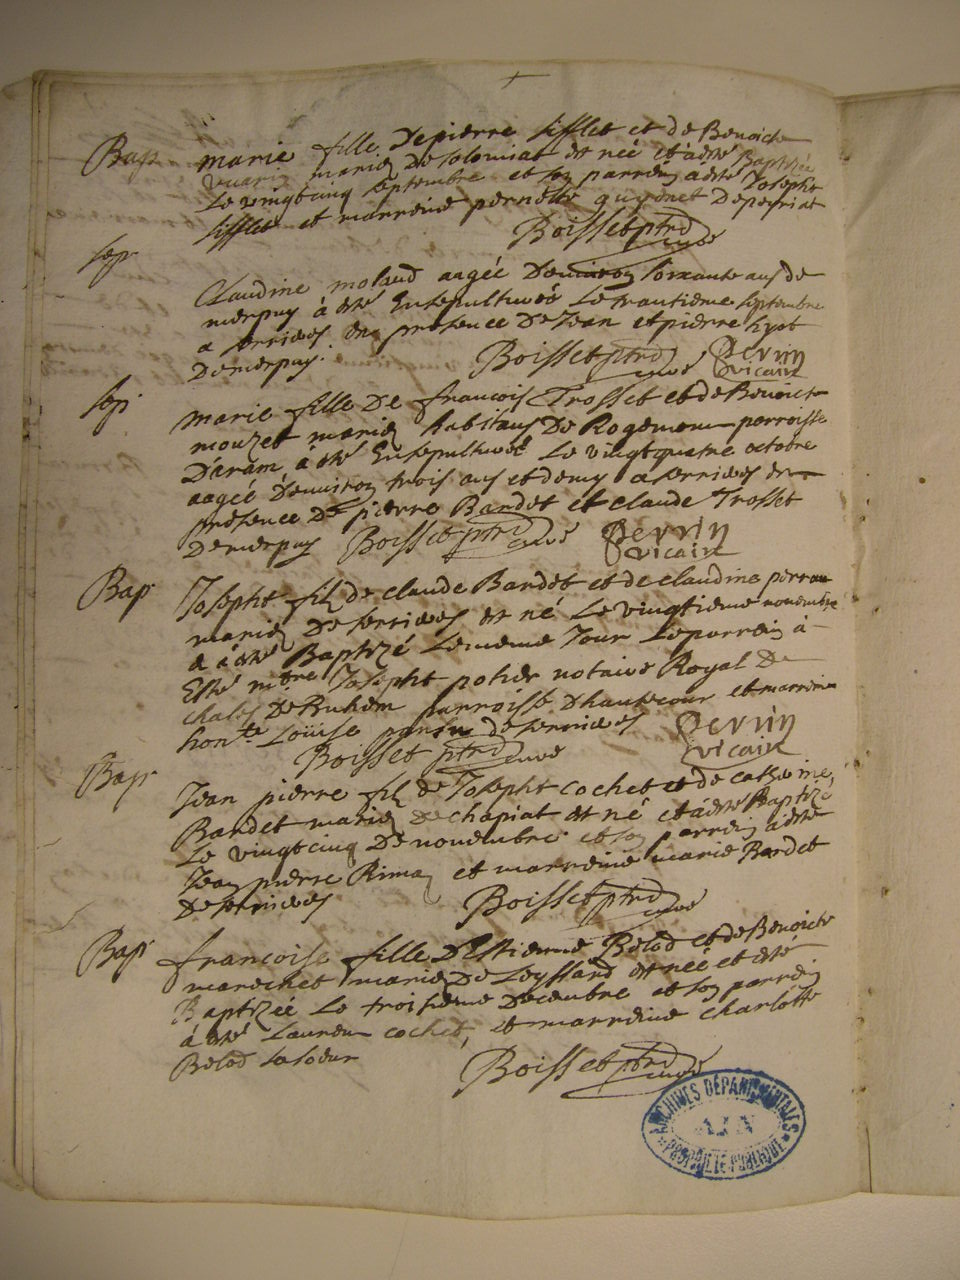 Bap. marie fille Depierre sifflet et de Benoicte
Vuarin mariez De solomiat est neé et à esté Baptizée
Le vingtcinq septembre et son parrein à esté Joseph
sifflet et marreine pernette guyonet Depeyriat
Boisset ptre curé
sep. Claudine moland aageé Denuiron soixante ans de
merpuy à esté Ensepultureé Le trantieme septembre
a serrieres en presence De Jean et pierre hyot
Demerpuy. Boisset ptre curé Perrin
vicaire
sep. marie fille De francois Trosset et de Benoicte
mouzet mariez habitans De Rogemon perroisse
Daram à esté Ensepultureé Le vingtquatre octobre
aageé Denuiron trois ans et demy a serrieres en
presence De pierre Bardet et claude Trosset
Demerpuy Boisset ptre curé Perrin
vicaire
Bap. Joseph filz de claude Bardet et de claudine perran
mariez De serrieres est né Le vingtieme nouembre
& à esté Baptizé Lememe Jour Leparrein à
Esté mtre Joseph potier notaire Royal de
chales De Buhem parroisse Dhautecour et marreine
honte. Loüise de serrieres Perrin
Boisset ptre curé vicaire
Bap. Jean pierre filz de Joseph cochet et de catherine
Bardet mariez de chapiat est né et à esté Baptizé
Le vingtcinq De nouembre et son parrein à esté
Jean pierre Rimaz et marreine marie Bardet
De serrieres Boisset ptre curé
Bap. francoise fille DEstienne Belod et de Benoicte
marechet mariez De Leyssard est neé et esté
Baptizeé Le troisieme Decembre et son parrein
à esté Lauren cochet, et marreine charlotte
Belod sa soeur Boisset ptre curé
ARCHIVES DÉPARTEMENTALES
AIN
PROPRIÉTÉ PUBLIQUE